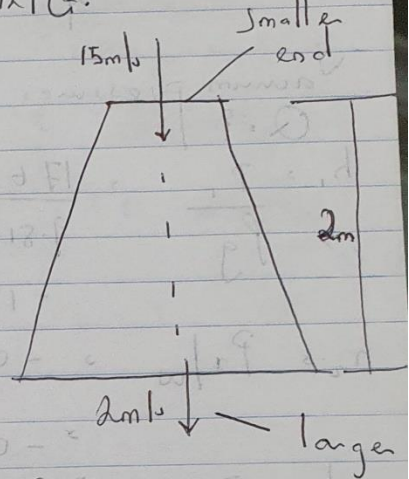 smaller
end
15m/s
2m
2m/s
larger